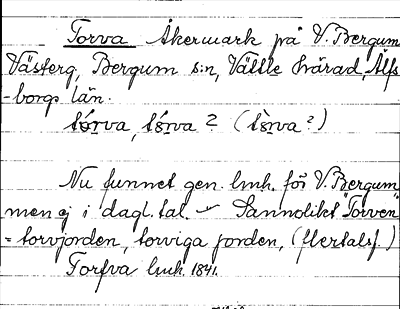 Torva Åkermark på V. Bergum
Västerg, Bergum s:n, Vättle härad, Älfs
-borgs län.
tórva, tórva ? (tòrva ?)
Nu funnet gen. lmh. för V. Bergum
men ej i dagl. tal. – Sannolikt "Torven"
= torvjorden, torviga jorden, (flertalsf.)
Torfva lmh. 1841.